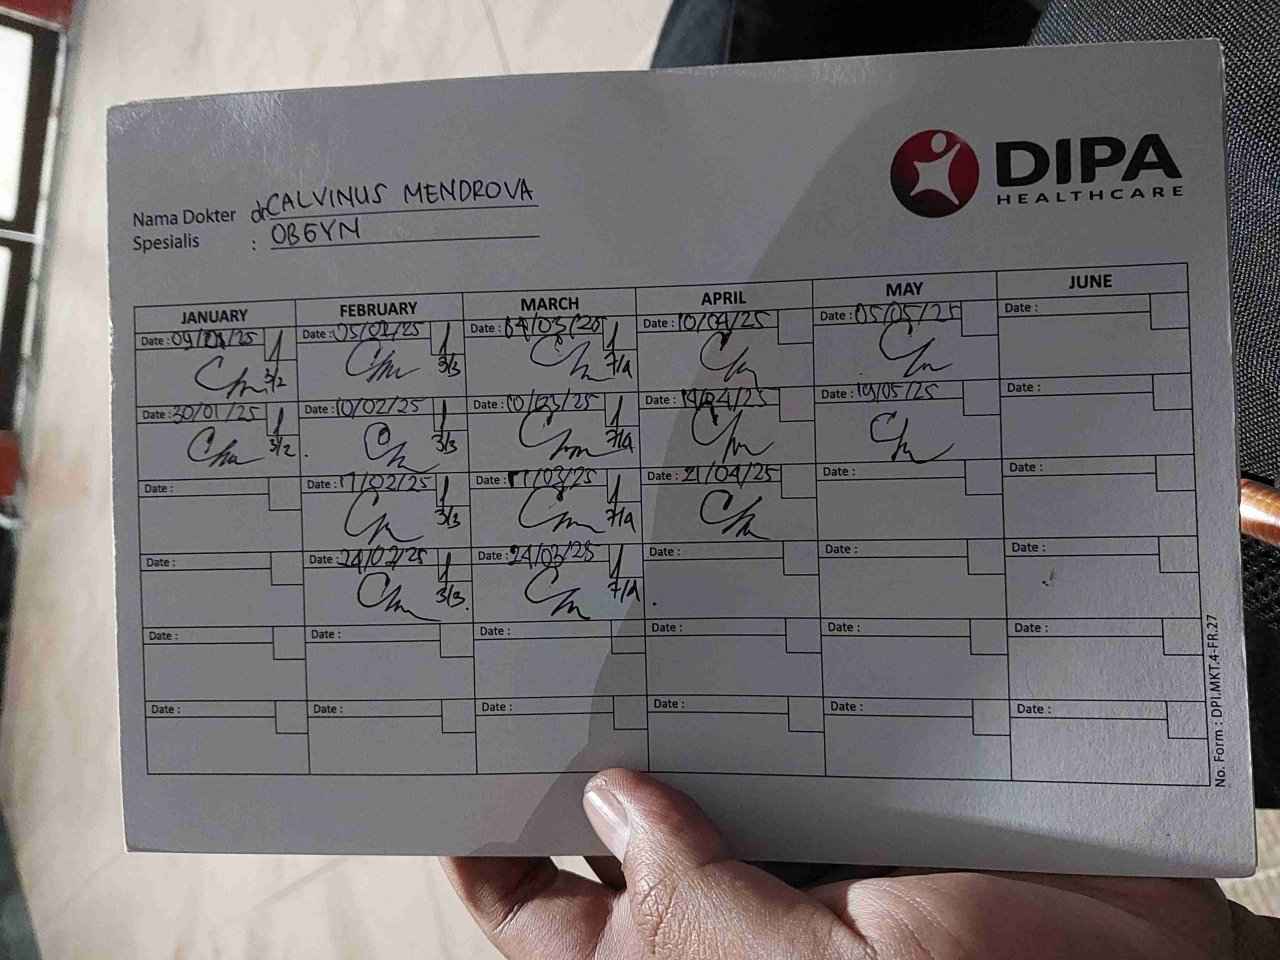 DIPA
HEALTHCARE
Nama Dokter dr CALVINUS MENDROVA
Spesialis : OBGYN
JANUARY FEBRUARY MARCH APRIL MAY JUNE
Date : 09/01/25 Date : 05/02/25 Date : 04/03/25 Date : 10/04/25 Date : 05/05/25 Date :
3/2 3/3 7/4
Date : 30/01/25 Date : 10/02/25 Date : 10/03/25 Date : 14/04/25 Date : 19/05/25 Date :
3/2 3/3 7/4
Date : Date : 17/02/25 Date : 17/03/25 Date : 21/04/25 Date : Date :
3/3 7/4
Date : Date : 24/02/25 Date : 24/03/25 Date : Date : Date :
3/3 7/4
Date : Date : Date : Date : Date : Date :
Date : Date : Date : Date : Date : Date :
No. Form : DPI.MKT.4-FR.27